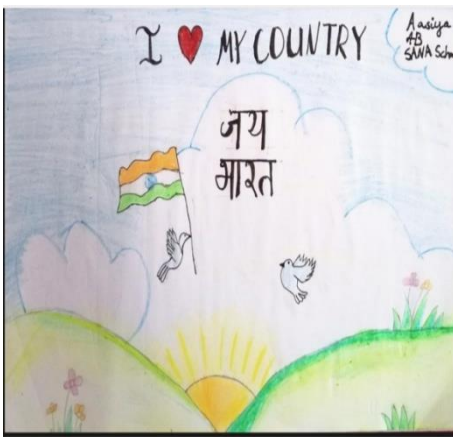 I ❤ MY COUNTRY
Aasiya
4B
SANA
जय
भारत